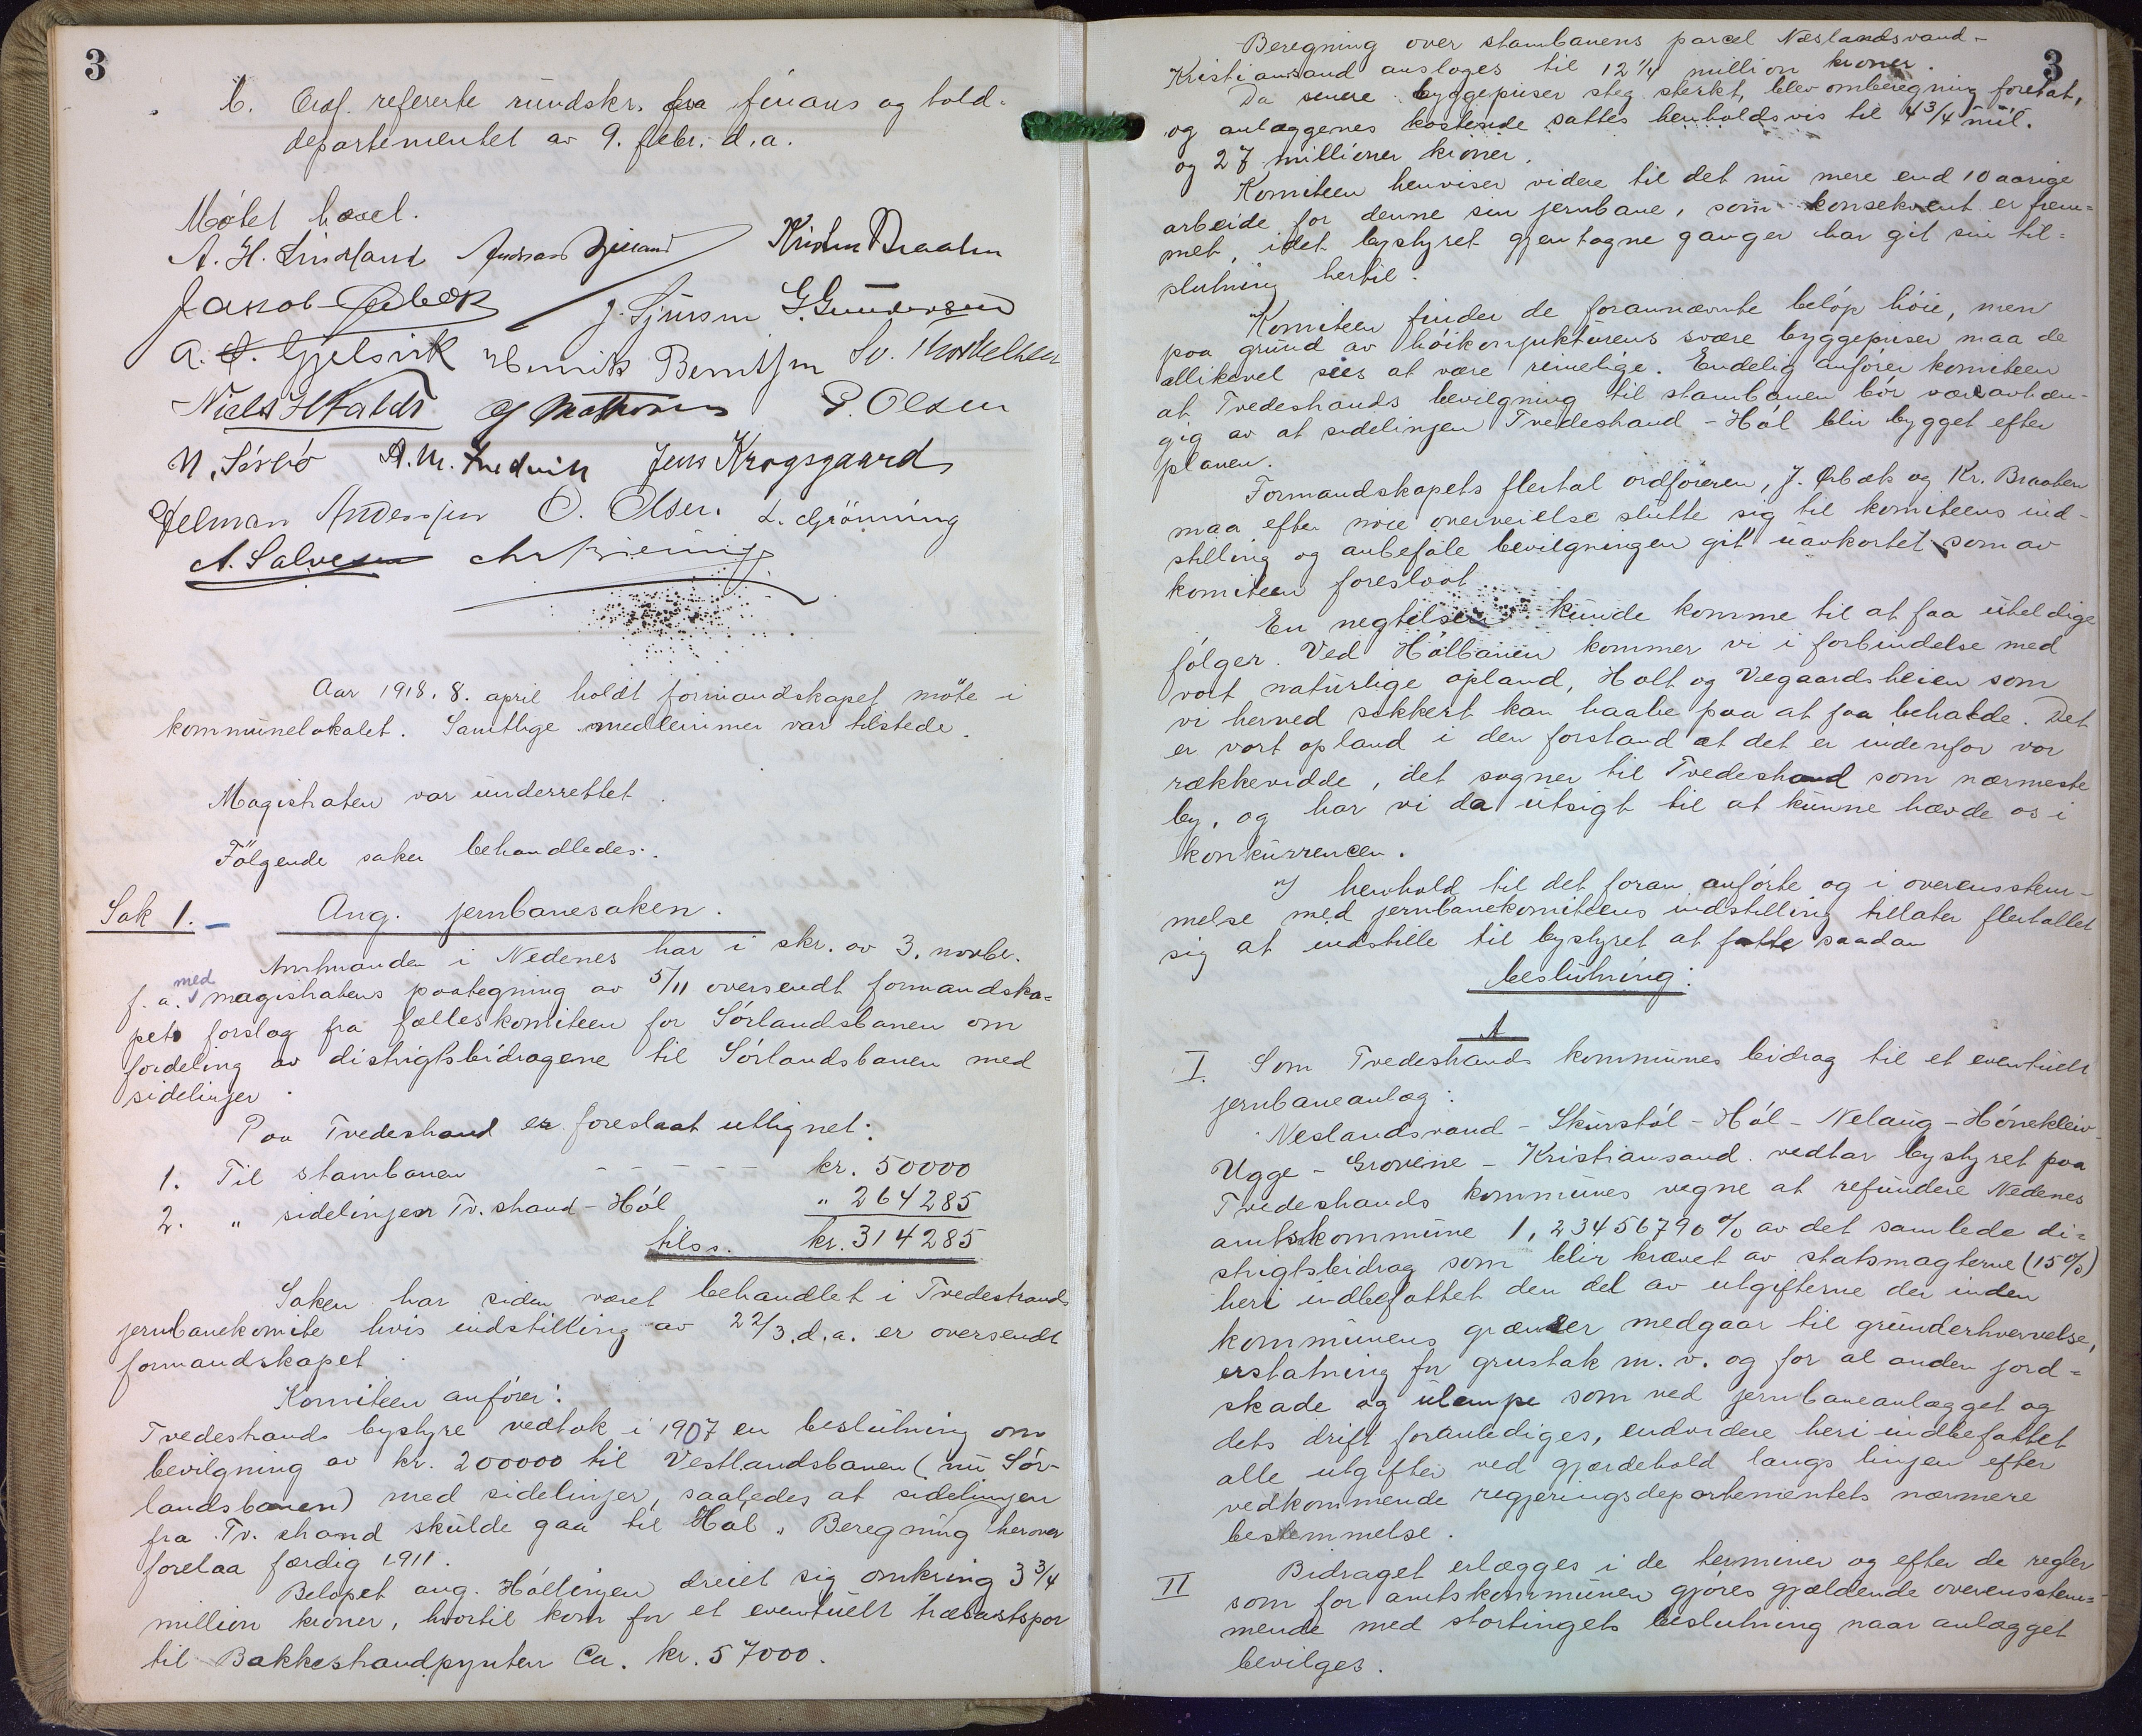 3
Ordf. refererte rundskr. fra finans og told-
departementet av 9. febr. d.a.
Møtet hævet.
A. H. Lindland Kristen Braaten
Jakob J. Sjursen G. Gundersen
A. Gjelsvik Henrik Berntsen
P. Olsen
N. Sørbø Jens Krogsgaard
Anderssen O. Olsen. L. Grönning
A. Salvesen
Aar 1918. 8. april holdt formandskapet möte i
kommunelokalet. Samtlige medlemmer var tilstede.
Magistraten var underrettet.
Følgende saker behandledes:
Sak 1. - Ang. jernbanesaken.
Amtmanden i Nedenes har i skr. av 3. novbr.
f.a. med magistratens paategning av 5/11 oversendt formandska-
pet forslag fra fælleskomiteen for Sørlandsbanen om
fordeling av distrigtsbidragene til Sørlandsbanen med
sidelinjer.
Paa Tvedestrand er foreslaat utlignet:
1. Til stambanen - - - - - - kr. 50000
2. " sidelinjen Tv.strand - Hól " 264285
tilss. kr. 314285
Saken har siden været behandlet i Tvedestrands
jernbanekomite hvis indstilling av 22/3 d.a. er oversendt
formandskapet.
Komiteen anfører:
Tvedestrands bystyre vedtok i 1907 en beslutning om
bevilgning av kr. 200000 til Vestlandsbanen (nu Sør-
landsbanen) med sidelinjer, saaledes at sidelinjen
fra Tv. strand skulde gaa til Hól. Beregning herover
forelaa færdig 1911.
Beløpet ang. Hóllinjen dreiet sig omkring 3 3/4
million kroner, hvortil kom for et eventuelt trælastspor
til Bakkestrandpynten Ca. kr. 57000.
3
Beregning over stambanens parcel Neslandsvand-
Kristiansand ansloges til 12 1/4 million kroner.
Da senere byggepriser steg sterkt, blev omberegning foretat,
og anlæggenes kostende sattes henholdsvis til 4 3/4 mil.
og 27 millioner kroner.
Komiteen henviser videre til det nu mere end 10 aarige
arbeide for denne sin jernbane, som konsekvent er frem-
met, idet bystyret gjentagne ganger har git sin til-
slutning hertil.
Komiteen finder de forannævnte beløp høie, men
paa grund av høikonjunkturens svære byggepriser maa de
allikevel sies at være rimelige. Endelig anfører komiteen
at Tvedestrands bevilgning til stambanen bør være avhæn-
gig av at sidelinjen Tvedestrand - Hól blir bygget efter
planen.
Formandskapets flertal ordføreren, J. Ørbæk og Kr. Braaten
maa efter nøie overveielse slutte sig til komiteens ind-
stilling og anbefale bevilgningen git uavkortet som av
komiteen foreslaat.
En negtelse kunde komme til at faa uheldige
følger. Ved Hólbanen kommer vi i forbindelse med
vort naturlige opland, Holt og Vegaardsheien som
vi herved sikkert kan haabe paa at faa beholde. Det
er vort opland i den forstand at det er indenfor vor
rækkevidde, det sogner til Tvedestrand som nærmeste
by, og har vi da utsigt til at kunne hævde os i
konkurrencen.
I henhold til det foran anførte og i overensstem-
melse med jernbanekomiteens indstilling tillater flertallet
sig at indstille til bystyret at fatte saadan
beslutning:
A
I. Som Tvedestrands kommunes bidrag til et eventuelt
jernbaneanlæg:
Neslandsvand - Skurstøl - Hól - Nelaug - Hónekleiv-
Ugge - Grovene - Kristiansand vedtar bystyret paa
Tvedestrands kommunes vegne at refundere Nedenes
amtskommune 1,23456790 % av det samlede di-
strigtsbidrag som blir krævet av statsmagterne (15%)
heri indbefattet den del av utgifterne der inden
kommunens grænser medgaar til grunderhvervelse,
erstatning for grustak m. v. og for al anden jord-
skade og ulempe som ved jernbaneanlægget og
dets drift foranlediges, endvidere heri indbefattet
alle utgifter ved gjerdehold langs linjen efter
vedkommende regjeringsdepartementets nærmere
bestemmelse.
II Bidraget erlægges i de terminer og efter de regler
som for amtskommunen gjøres gjældende overensstem-
mende med stortingets beslutning naar anlægget
bevilges.